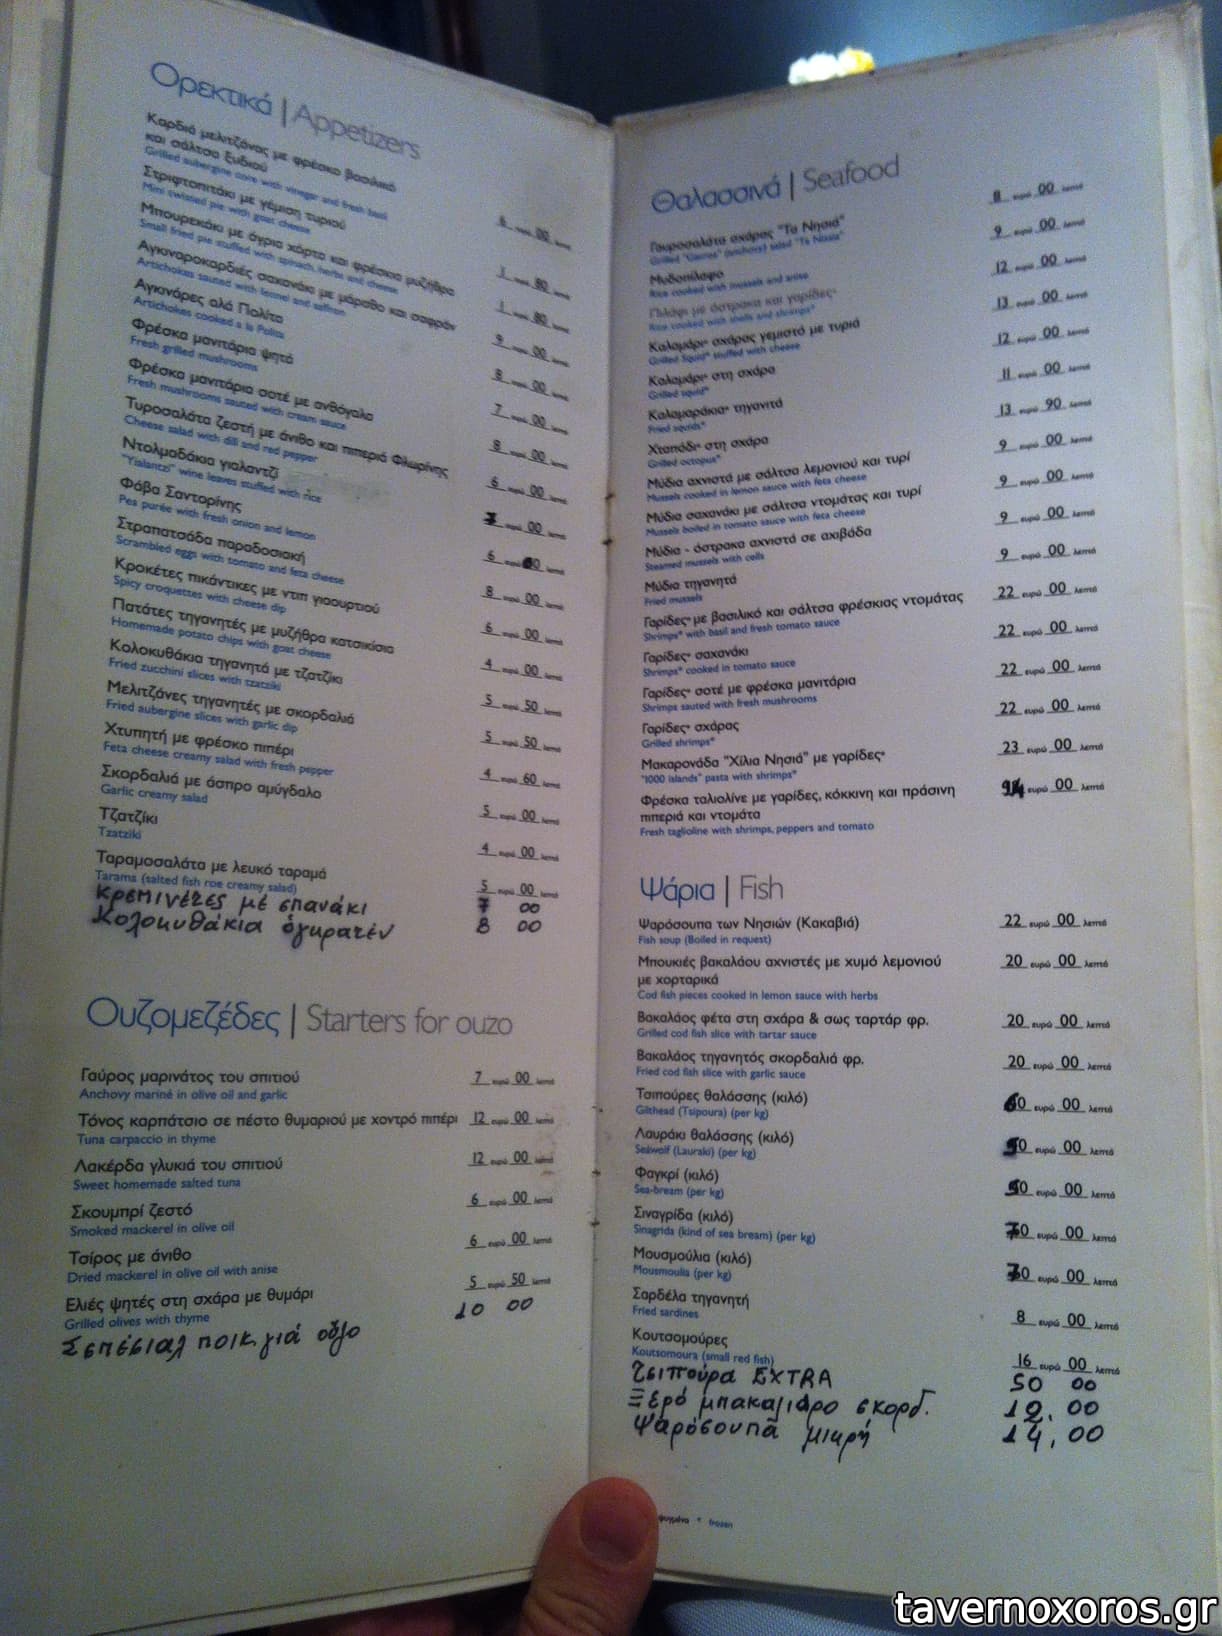 Ορεκτικά | Appetizers
Καρδιά μελιτζάνας με φρέσκο βασιλικό
και σάλτσα ξυδιού
Grilled aubergine core with vinegar and fresh basil
6 ευρώ 00 λεπτά
Στριφτοπιτάκι με γέμιση τυριού
Mini twisted pie with goat cheese
1 ευρώ 80 λεπτά
Μπουρεκάκι με άγρια χόρτα και φρέσκια μυζήθρα
Small fried pie stuffed with spinach, herbs and cheese
1 ευρώ 80 λεπτά
Αγκιναροκαρδιές σαχανάκι με μάραθο και σαφράν
Artichokes sauted with fennel and saffron
9 ευρώ 00 λεπτά
Αγκινάρες αλά Πολίτα
Artichokes cooked a la Polita
8 ευρώ 00 λεπτά
Φρέσκα μανιτάρια ψητά
Fresh grilled mushrooms
7 ευρώ 00 λεπτά
Φρέσκα μανιτάρια σοτέ με ανθόγαλα
Fresh mushrooms sauted with cream sauce
8 ευρώ 00 λεπτά
Τυροσαλάτα ζεστή με άνιθο και πιπεριά Φλωρίνης
Cheese salad with dill and red pepper
6 ευρώ 00 λεπτά
Ντολμαδάκια γιαλαντζί
"Yialantzi" wine leaves stuffed with rice
7 ευρώ 00 λεπτά
Φάβα Σαντορίνης
Pea purée with fresh onion and lemon
6 ευρώ 00 λεπτά
Στραπατσάδα παραδοσιακή
Scrambled eggs with tomato and feta cheese
8 ευρώ 00 λεπτά
Κροκέτες πικάντικες με ντιπ γιαουρτιού
Spicy croquettes with cheese dip
6 ευρώ 00 λεπτά
Πατάτες τηγανητές με μυζήθρα κατσικίσια
Homemade potato chips with goat cheese
4 ευρώ 00 λεπτά
Κολοκυθάκια τηγανητά με τζατζίκι
Fried zucchini slices with tzatziki
5 ευρώ 50 λεπτά
Μελιτζάνες τηγανητές με σκορδαλιά
Fried aubergine slices with garlic dip
5 ευρώ 50 λεπτά
Χτυπητή με φρέσκο πιπέρι
Feta cheese creamy salad with fresh pepper
4 ευρώ 60 λεπτά
Σκορδαλιά με άσπρο αμύγδαλο
Garlic creamy salad
5 ευρώ 00 λεπτά
Τζατζίκι
Tzatziki
4 ευρώ 00 λεπτά
Ταραμοσαλάτα με λευκό ταραμά
Tarama (salted fish roe creamy salad)
5 ευρώ 00 λεπτά
κρεπινέτες μέ σπανάκι 7 00
Κολοκυθάκια όγκρατέν 8 00
Ουζομεζέδες | Starters for ouzo
Γαύρος μαρινάτος του σπιτιού 7 ευρώ 00 λεπτά
Anchovy mariné in olive oil and garlic
Τόνος καρπάτσιο σε πέστο θυμαριού με χοντρό πιπέρι 12 ευρώ 00 λεπτά
Tuna carpaccio in thyme
Λακέρδα γλυκιά του σπιτιού 12 ευρώ 00 λεπτά
Sweet homemade salted tuna
Σκουμπρί ζεστό 6 ευρώ 00 λεπτά
Smoked mackerel in olive oil
Τσίρος με άνιθο 6 ευρώ 00 λεπτά
Dried mackerel in olive oil with anise
Ελιές ψητές στη σχάρα με θυμάρι 5 ευρώ 50 λεπτά
Grilled olives with thyme
Σπέσιαλ ποικ. γιά ούζο 10 00
Θαλασσινά | Seafood
Γαυροσαλάτα σχάρας "Τα Νησιά" 8 ευρώ 00 λεπτά
Grilled "Gavros" (anchovy) salad "Ta Nissia"
Μυδοπίλαφο 9 ευρώ 00 λεπτά
Rice cooked with mussels and anise
Πιλάφι με όστρακα και γαρίδες* 12 ευρώ 00 λεπτά
Rice cooked with shells and shrimps*
Καλαμάρι* σχάρας γεμιστό με τυριά 13 ευρώ 00 λεπτά
Grilled Squid* stuffed with cheese
Καλαμάρι* στη σχάρα 12 ευρώ 00 λεπτά
Grilled squid*
Καλαμαράκια* τηγανιτά 11 ευρώ 00 λεπτά
Fried squids*
Χταπόδι* στη σχάρα 13 ευρώ 90 λεπτά
Grilled octopus*
Μύδια αχνιστά με σάλτσα λεμονιού και τυρί 9 ευρώ 00 λεπτά
Mussels cooked in lemon sauce with feta cheese
Μύδια σαχανάκι με σάλτσα ντομάτας και τυρί 9 ευρώ 00 λεπτά
Mussels boiled in tomato sauce with feta cheese
Μύδια - όστρακα αχνιστά σε αχιβάδα 9 ευρώ 00 λεπτά
Steamed mussels with cells
Μύδια τηγανητά 9 ευρώ 00 λεπτά
Fried mussels
Γαρίδες* με βασιλικό και σάλτσα φρέσκιας ντομάτας 22 ευρώ 00 λεπτά
Shrimps* with basil and fresh tomato sauce
Γαρίδες* σαχανάκι 22 ευρώ 00 λεπτά
Shrimps* cooked in tomato sauce
Γαρίδες* σοτέ με φρέσκα μανιτάρια 22 ευρώ 00 λεπτά
Shrimps sauted with fresh mushrooms
Γαρίδες* σχάρας 22 ευρώ 00 λεπτά
Grilled shrimps*
Μακαρονάδα "Χίλια Νησιά" με γαρίδες* 23 ευρώ 00 λεπτά
"1000 islands" pasta with shrimps*
Φρέσκα ταλιολίνε με γαρίδες, κόκκινη και πράσινη ευρώ 00 λεπτά
πιπεριά και ντομάτα
Fresh taglioline with shrimps, peppers and tomato
Ψάρια | Fish
Ψαρόσουπα των Νησιών (Κακαβιά) 22 ευρώ 00 λεπτά
Fish soup (Boiled in request)
Μπουκιές βακαλάου αχνιστές με χυμό λεμονιού 20 ευρώ 00 λεπτά
με χορταρικά
Cod fish pieces cooked in lemon sauce with herbs
Βακαλάος φέτα στη σχάρα & σως ταρτάρ φρ. 20 ευρώ 00 λεπτά
Grilled cod fish slice with tartar sauce
Βακαλάος τηγανητός σκορδαλιά φρ. 20 ευρώ 00 λεπτά
Fried cod fish slice with garlic sauce
Τσιπούρες θαλάσσης (κιλό) 60 ευρώ 00 λεπτά
Gilthead (Tsipoura) (per kg)
Λαυράκι θαλάσσης (κιλό) ευρώ 00 λεπτά
Seawolf (Lauraki) (per kg)
Φαγκρί (κιλό) ευρώ 00 λεπτά
Sea-bream (per kg)
Συναγρίδα (κιλό) 70 ευρώ 00 λεπτά
Sinagrida (kind of sea bream) (per kg)
Μουσμούλια (κιλό) ευρώ 00 λεπτά
Mousmoulia (per kg)
Σαρδέλα τηγανητή 8 ευρώ 00 λεπτά
Fried sardines
Κουτσομούρες 16 ευρώ 00 λεπτά
Koutsomoura (small red fish)
Τσιπούρα EXTRA 50 00
Ξερό μπακαλιάρο σκορδ. 12.00
Ψαρόσουπα μικρή 14,00
* frozen
tavernoxoros.gr